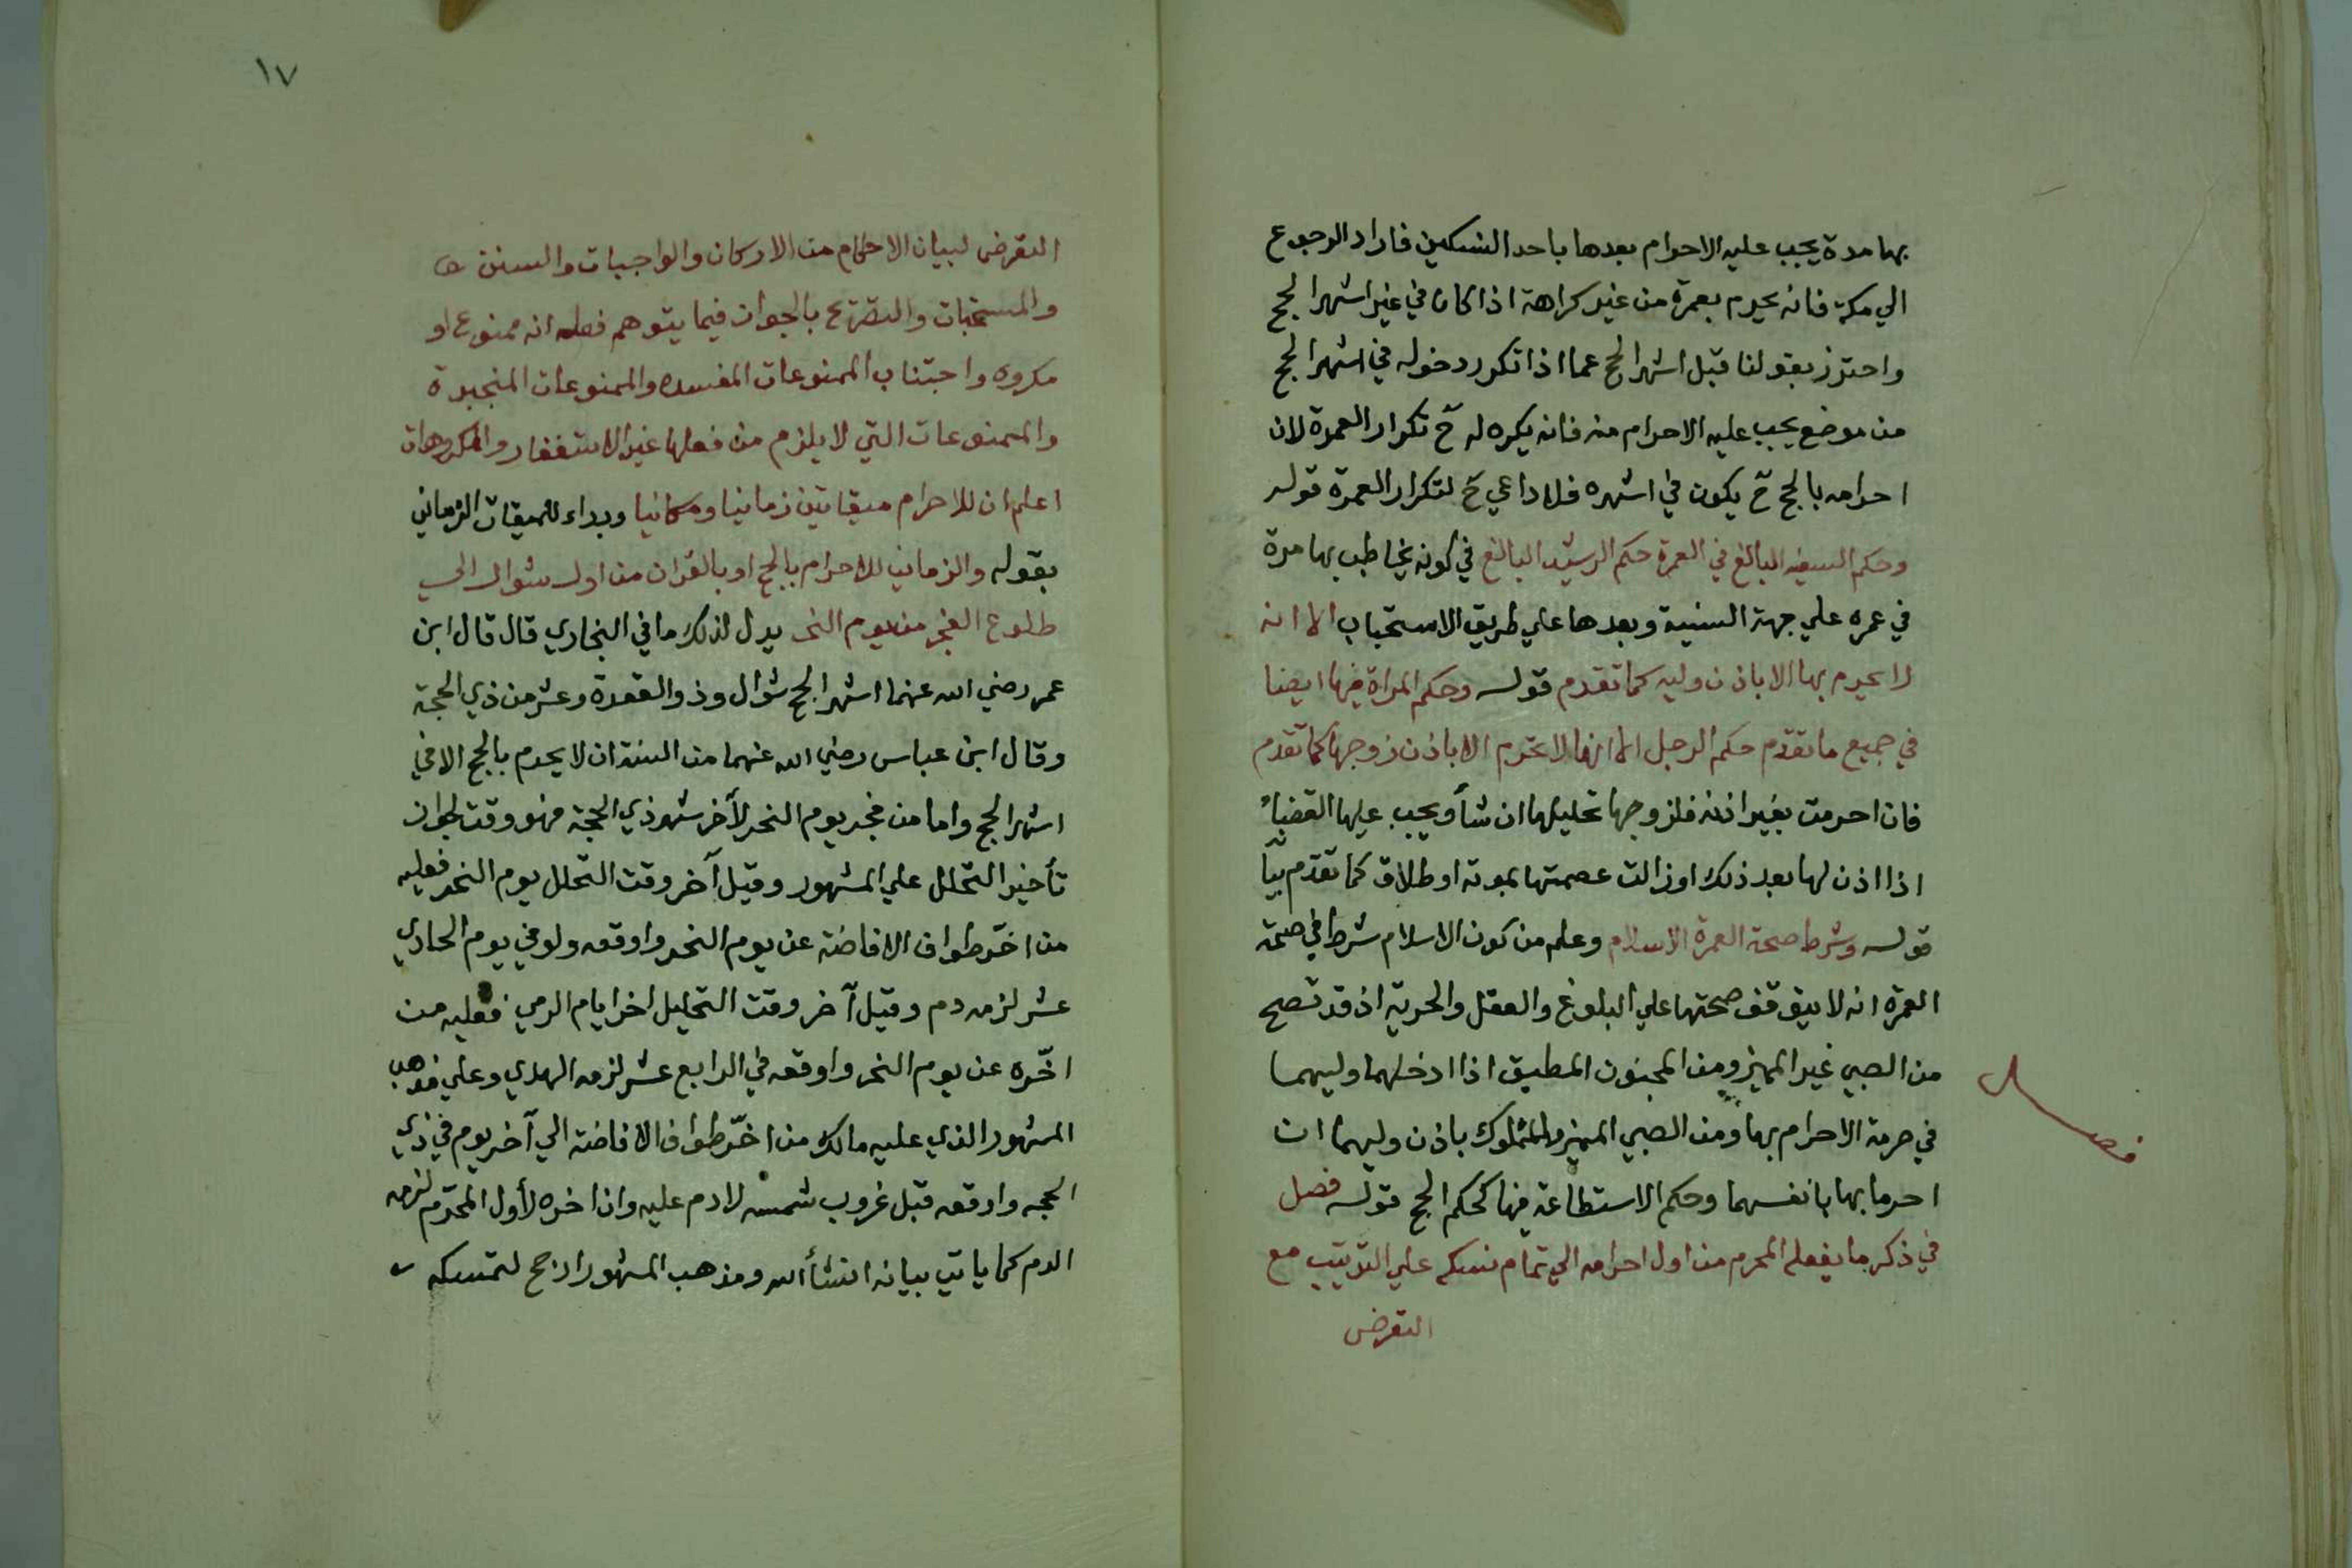 بها مدة يجب عليه الاحرام بعدها باحد النسكين فاراد الرجوع
الي مكة فانه يحرم بعمرة من غير كراهة اذا كان في غير اشهر الحج
واحترز بقولنا قبل اشهر الحج عما اذا تكرر دخوله في اشهر الحج
من موضع يجب عليه الاحرام منه فانه يكره له ح تكرار العمرة لان
احرامه بالحج ح يكون في اشهره فلا داعي ح لتكرار العمرة قوله
وحكم السفيه البالغ في العمرة حكم الرشيد البالغ في كونه يخاطب بها مرة
في عمره علي جهة السنية وبعدها علي طريق الاستحباب الا انه
لا يحرم بها الا باذن وليه كما تقدم قوله وحكم المراة فيها ايضا
في جميع ما تقدم حكم الرجل الا انها لا تحرم الا باذن زوجها كما تقدم
فان احرمت بغير اذنه فلزوجها تحليلها ان شأ ويجب عليها القضاء
اذا اذن لها بعد ذلك او زالت عصمتها بموته او طلاق كما تقدم
قوله وشرط صحة العمرة الاسلام وعلم من كون الاسلام شرط في صحة
العمرة انه لا يتوقف صحتها علي البلوغ والعقل والحرية اذ قد تصح
من الصبي غير المميز ومن المجنون المطبق اذا ادخلهما وليهما
فصل
في حرمة الاحرام بها ومن الصبي المميز والمملوك باذن وليهما ان
احرما بها بانفسهما وحكم الاستطاعة فيها كحكم الحج قوله فصل
في ذكر ما يفعله المحرم من اول احرامه الي تمام نسكه علي الترتيب مع
التعرض
١٧
التعرض لبيان الاحكام من الاركان والواجبات والسنن
والمستحبات والتصريح بالجواز فيما يتوهم فعله انه ممنوع او
مكروه واجتناب الممنوعات المفسده والممنوعات المنجبرة
والممنوعات التي لا يلزم من فعلها غير الاستغفار والمكروهات
اعلم ان للاحرام ميقاتين زمانيا ومكانيا وبداء للميقات الزماني
بقوله والزماني للاحرام بالحج او بالقران من اول شوال الي
طلوع الفجر من يوم النحر يدل لذلك ما في البخاري قال قال ابن
عمر رضي الله عنهما اشهر الحج شوال وذو القعدة وعشر من ذي الحجة
وقال ابن عباس رضي الله عنهما من السنة ان لا يحرم بالحج الا في
اشهر الحج واما من فجر يوم النحر لآخر شهر ذي الحجة فهو وقت لجواز
تأخير التحلل علي المشهور وقيل آخر وقت التحلل يوم النحر فعليه
من اخّر طواف الافاضة عن يوم النحر واوقعه ولو في يوم الحادي
عشر لزمه دم وقيل آخر وقت التحليل اخر ايام الرمي فعليه من
اخّره عن يوم النحر واوقعه في الرابع عشر لزمه الهدي وعلي مذهب
المشهور الذي عليه مالك من اخّر طواف الافاضة الي آخر يوم في ذي
الحجه واوقعه قبل غروب شمسه لا دم عليه وان اخره لأول المحرّم لزمه
الدم كما ياتي بيانه انشأ الله ومذهب المشهور ارجح لتمسكه